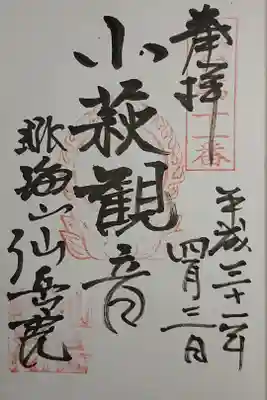 奉拝
二番
平成三十一年
四月三日
小萩観音
眺海山仙岳院